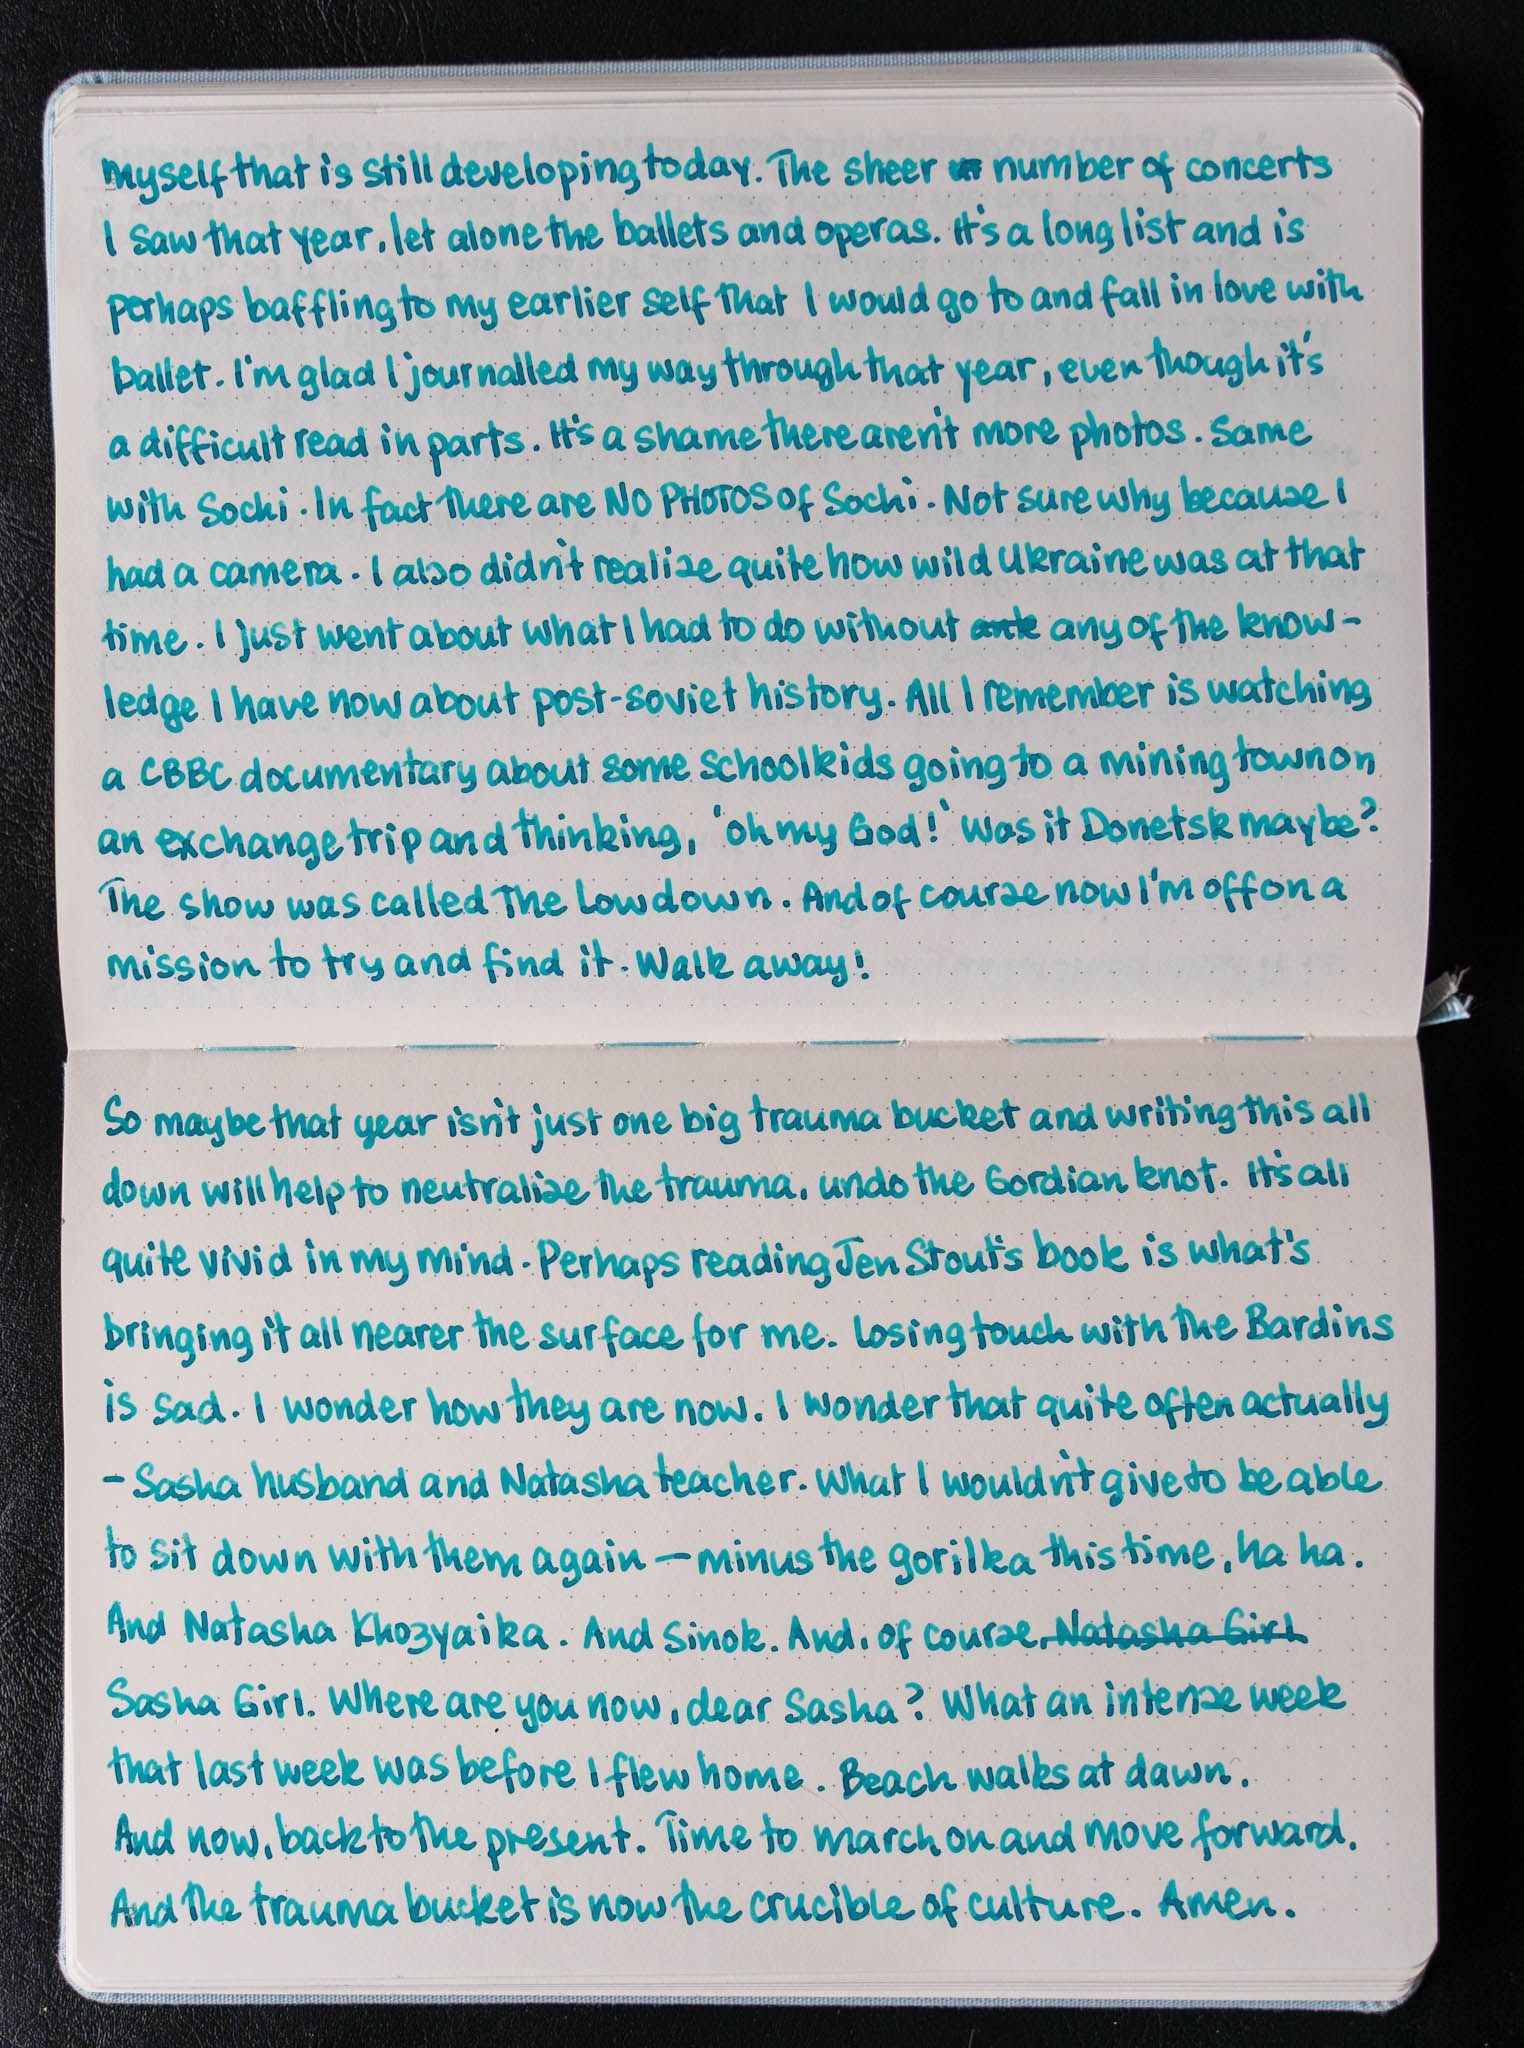 myself that is still developing today. The sheer number of concerts
I saw that year, let alone the ballets and operas. It's a long list and is
perhaps baffling to my earlier self that I would go to and fall in love with
ballet. I'm glad I journalled my way through that year, even though it's
a difficult read in parts. It's a shame there aren't more photos. Same
with Sochi. In fact there are NO PHOTOS of Sochi. Not sure why because I
had a camera. I also didn't realize quite how wild Ukraine was at that
time. I just went about what I had to do without any of the know-
ledge I have now about post-soviet history. All I remember is watching
a CBBC documentary about some schoolkids going to a mining town on
an exchange trip and thinking, 'oh my God!' Was it Donetsk maybe?
The show was called The Lowdown. And of course now I'm off on a
mission to try and find it. Walk away!
So maybe that year isn't just one big trauma bucket and writing this all
down will help to neutralise the trauma, undo the Gordian knot. It's all
quite vivid in my mind. Perhaps reading Jen Stout's book is what's
bringing it all nearer the surface for me. Losing touch with the Bardins
is sad. I wonder how they are now. I wonder that quite often actually
- Sasha husband and Natasha teacher. What I wouldn't give to be able
to sit down with them again - minus the gorilka this time, ha ha.
And Natasha Khozyaika. And Sinok. And, of course, Natasha Girl
Sasha Girl. Where are you now, dear Sasha? What an intense week
that last week was before I flew home. Beach walks at dawn.
And now, back to the present. Time to march on and move forward.
And the trauma bucket is now the crucible of culture. Amen.